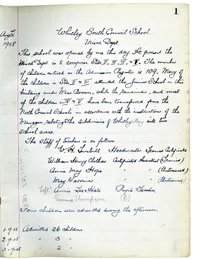 1
Augst 1908
Whitley South Council School.
Mixed Dept.
This school was opened by me this day. At present the
Mixed Dept is to comprise Stds II, III, IV, & V. The number
of children entered in the Admission Register is 109. Many of
the children in Stds II & III attended the Junior School in this
building and Miss Brown, while the remainder, and most
of the children in IV & V have been transferred from the
North Council Schools in accordance with the instructions of the
Managers
school areas.
The Staff of teachers is as follows
Headmaster Trained Certificated
William Henry Clothes Certificated Assistant (Trained)
Annie May Hope " " (Untrained)
May Warriner " " (Untrained)
left Annie Lee Heals Pupil Teacher
Four children were admitted during the afternoon.
1-9-08 Admitted 26 children
2-9-08 " 3 "
3-9-08 " 2 "